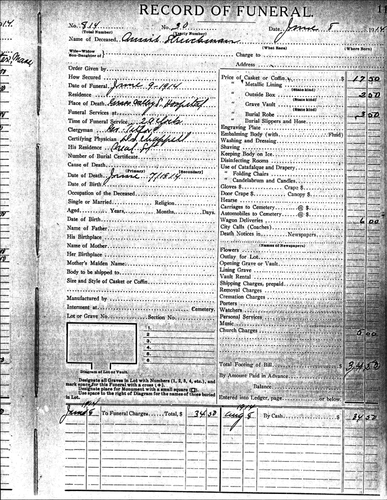 RECORD OF FUNERAL.
No. 814 No. 20 Date, June 8 1914
(Total Number) (Yearly Number)
Name of Deceased, Annis
(What Race) (Where Born)
Wife—Widow
Son-Daughter of Charge to
Address
Order Given by
How Secured
Date of Funeral, June 9-1914
Residence
Place of Death, Hospital
Funeral Services at
Time of Funeral Service, 2 o'clock
Clergyman
Certifying Physician
His Residence
Number of Burial Certificate,
Cause of Death
(Primary) (Secondary)
Date of Death, June 7/1914
Date of Birth
Occupation of the Deceased
Single or Married, Religion,
Aged, Years, Months, Days.
Date of Birth,
Name of Father
His Birthplace
Name of Mother
Her Birthplace
Mother's Maiden Name,
Body to be shipped to
Size and Style of Casket or Coffin,
Manufactured by
Interment at Cemetery.
Lot or Grave No. Section No.
1.
2.
3.
4.
5.
Diagram of Lot or Vault.
Designate all Graves in Lot with Numbers (1, 2, 3, 4, etc.), and mark cross for this Funeral with a cross (+).
Designate place of Monument with a small square (□).
Use space in the right of Diagram for names of those buried in Lot.
Price of Casket or Coffin, $ 17 50
" Metallic Lining
(State kind)
" Outside Box 2 50
(State kind)
" Grave Vault
(State kind)
" Burial Robe 3 50
(State kind)
" Burial Slippers and Hose
Engraving Plate
Embalming Body (with Fluid)
Washing and Dressing
Shaving
Keeping Body on Ice
Disinfecting Rooms
Use of Catafalque and Drapery
" Folding Chairs
" Candelabrum and Candles
Gloves $ Crape $
Door Crape $ Canopy $
Hearse
Carriages to Cemetery @ $
Automobiles to Cemetery @ $
Wagon Deliveries 6 00
City Calls (Coaches)
Death Notices in Newspapers
(Names of Newspapers)
Flowers
Outlay for Lot
Opening Grave or Vault
Lining Grave
Vault Rental
Shipping Charges, prepaid
Removal Charges
Cremation Charges
Porters
Watchers
Personal Services
Music
Church Charges 5 00
Total Footing of Bill $ 34 50
By Amount Paid in Advance
Balance
Entered into Ledger, page or below.
1914
June 8 To Funeral Charges Total, $ 34 50
1914
Aug 5 By Cash $ 34 50